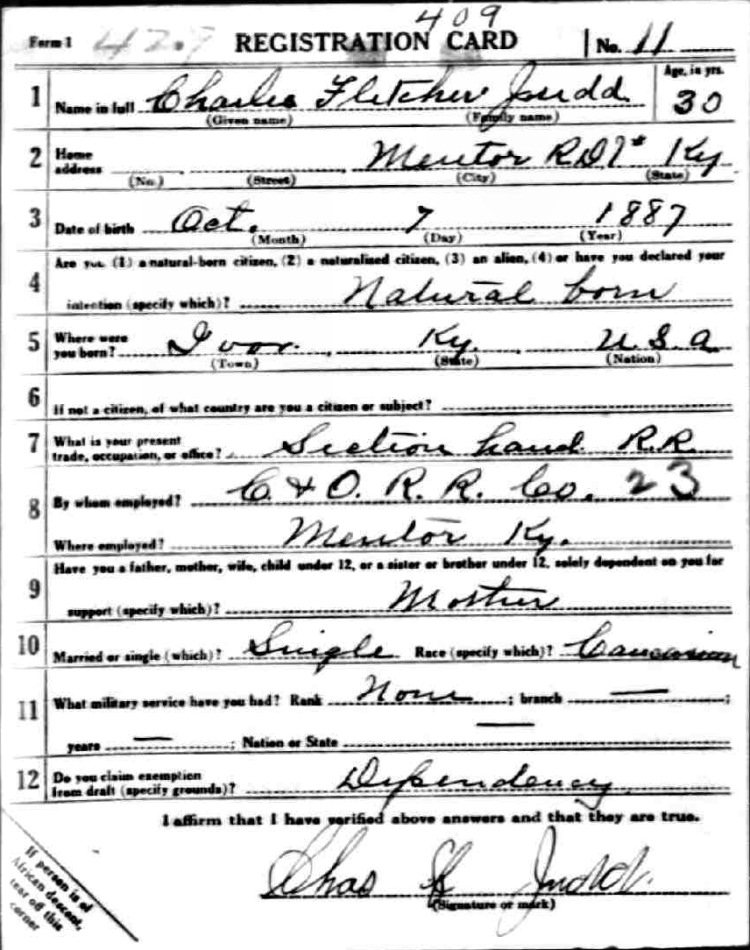 409
Form 1 REGISTRATION CARD No. 11
1 Name in full Charlie Fletcher Judd Age, in yrs. 30
(Given name) (Family name)
2 Home address Mentor R.D. Ky
(No.) (Street) (City) (State)
3 Date of birth Oct. 7 1887
(Month) (Day) (Year)
4 Are you (1) a natural-born citizen, (2) a naturalized citizen, (3) an alien, (4) or have you declared your
intention (specify which)? Natural born
5 Where were you born? Ivor. Ky. U.S.A
(Town) (State) (Nation)
6 If not a citizen, of what country are you a citizen or subject?
7 What is your present trade, occupation, or office? Section hand R.R.
8 By whom employed? C. & O. R. R. Co. 23
Where employed? Mentor Ky.
9 Have you a father, mother, wife, child under 12, or a sister or brother under 12, solely dependent on you for
support (specify which)? Mother
10 Married or single (which)? Single Race (specify which)? Caucasian
11 What military service have you had? Rank None ; branch — ;
years — ; Nation or State —
12 Do you claim exemption from draft (specify grounds)? Dependency
I affirm that I have verified above answers and that they are true.
Chas F Judd.
(Signature or mark)
If person is of
African descent,
tear off this
corner